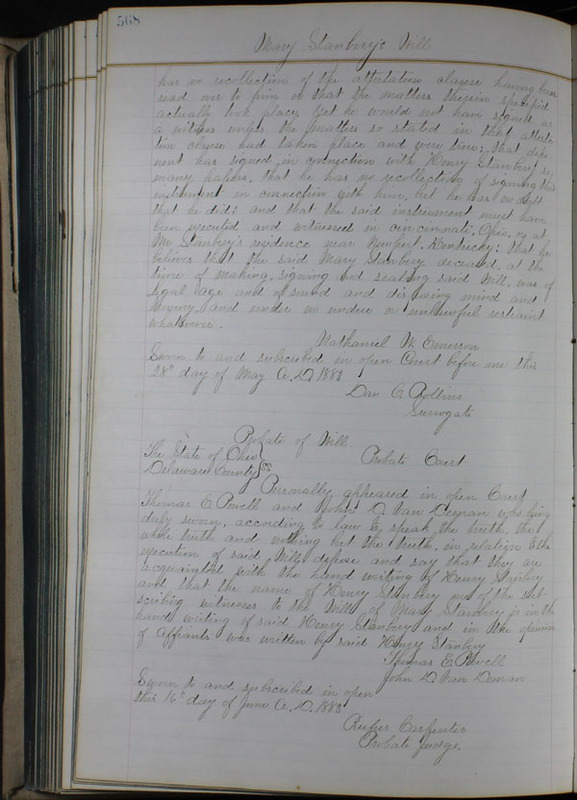 568
Mary Stanbery's Will
has no recollection of the attestation clause having been
read over to him or that the matters therein specified
actually took place, yet he would not have signed as
a witness unless the matters so stated in that attesta-
tion clause had taken place and were true; that depo-
nent has signed in connection with Henry Stanbery so
many papers, that he has no recollection of signing this
instrument in connection with him, but he has no doubt
that he did; and that the said instrument must have
been executed and witnessed in Cincinnati, Ohio, or at
Mr. Stanbery's residence near Newport, Kentucky: that he
believes that the said Mary Stanbery deceased, at the
time of making, signing and sealing said Will, was of
legal age and of sound and disposing mind and
memory, and under no undue or unlawful restraint
whatsoever.
Nathaniel W. Emerson
Sworn to and subscribed in open Court before me this
28" day of May A.D. 1883
Dan G. Rollins
Surrogate
Probate of Will
The State of Ohio } ss
Delaware County
Probate Court
Personally appeared in open Court
Thomas E. Powell and John D. Van Deman who being
duly sworn, according to law to speak the truth, the
whole truth and nothing but the truth, in relation to the
execution of said Will, depose and say that they are
acquainted with the hand writing of Henry Stanbery
and that the name of Henry Stanbery one of the sub-
scribing witnesses to the Will of Mary Stanbery is in the
hand writing of said Henry Stanbery and in the opinion
of Affiants was written by said Henry Stanbery
Thomas E. Powell
John D. Van Deman
Sworn to and subscribed in open
this 16" day of June A.D. 1883
Rufus Carpenter
Probate Judge.